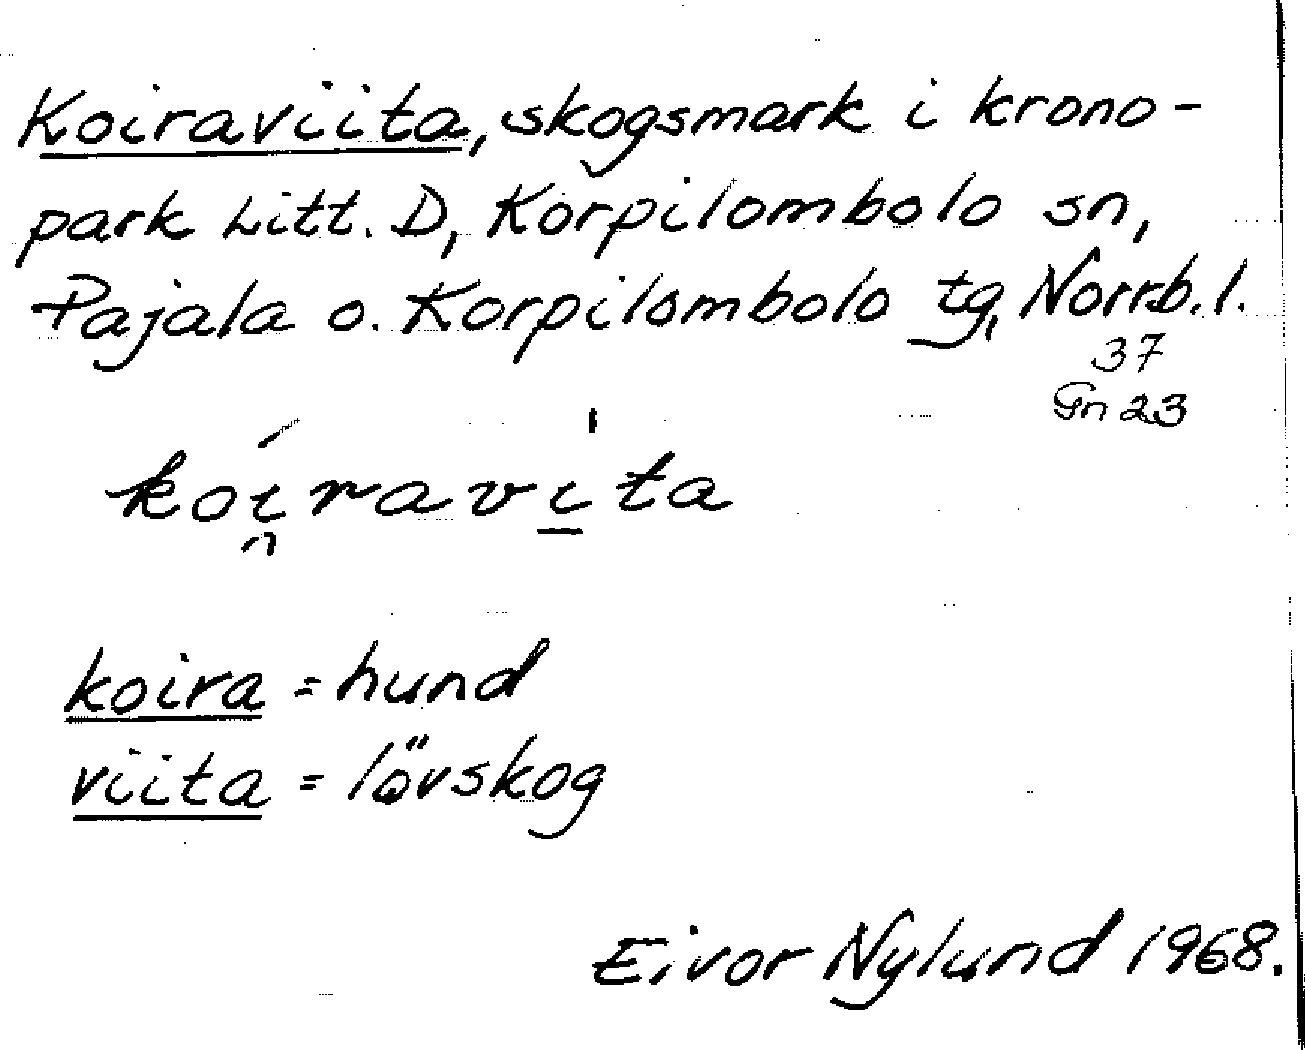 Koiraviita, skogsmark i krono-
park Litt. D, Korpilombolo sn,
Pajala o. Korpilombolo tg, Norrb. l.
37
Gn 23
koi̯ravi̱ta
koira = hund
viita = lövskog
Eivor Nylund 1968.